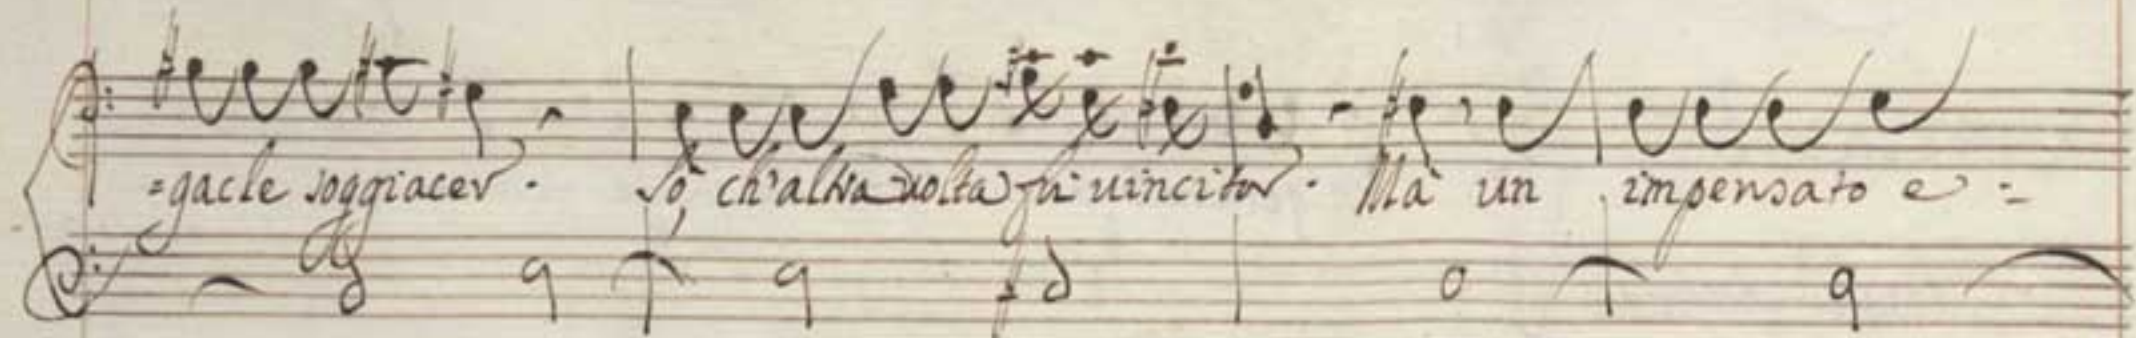 =gacle soggiacer. Sò, ch'altra uolta fù uincitor. Mà un impensato e=